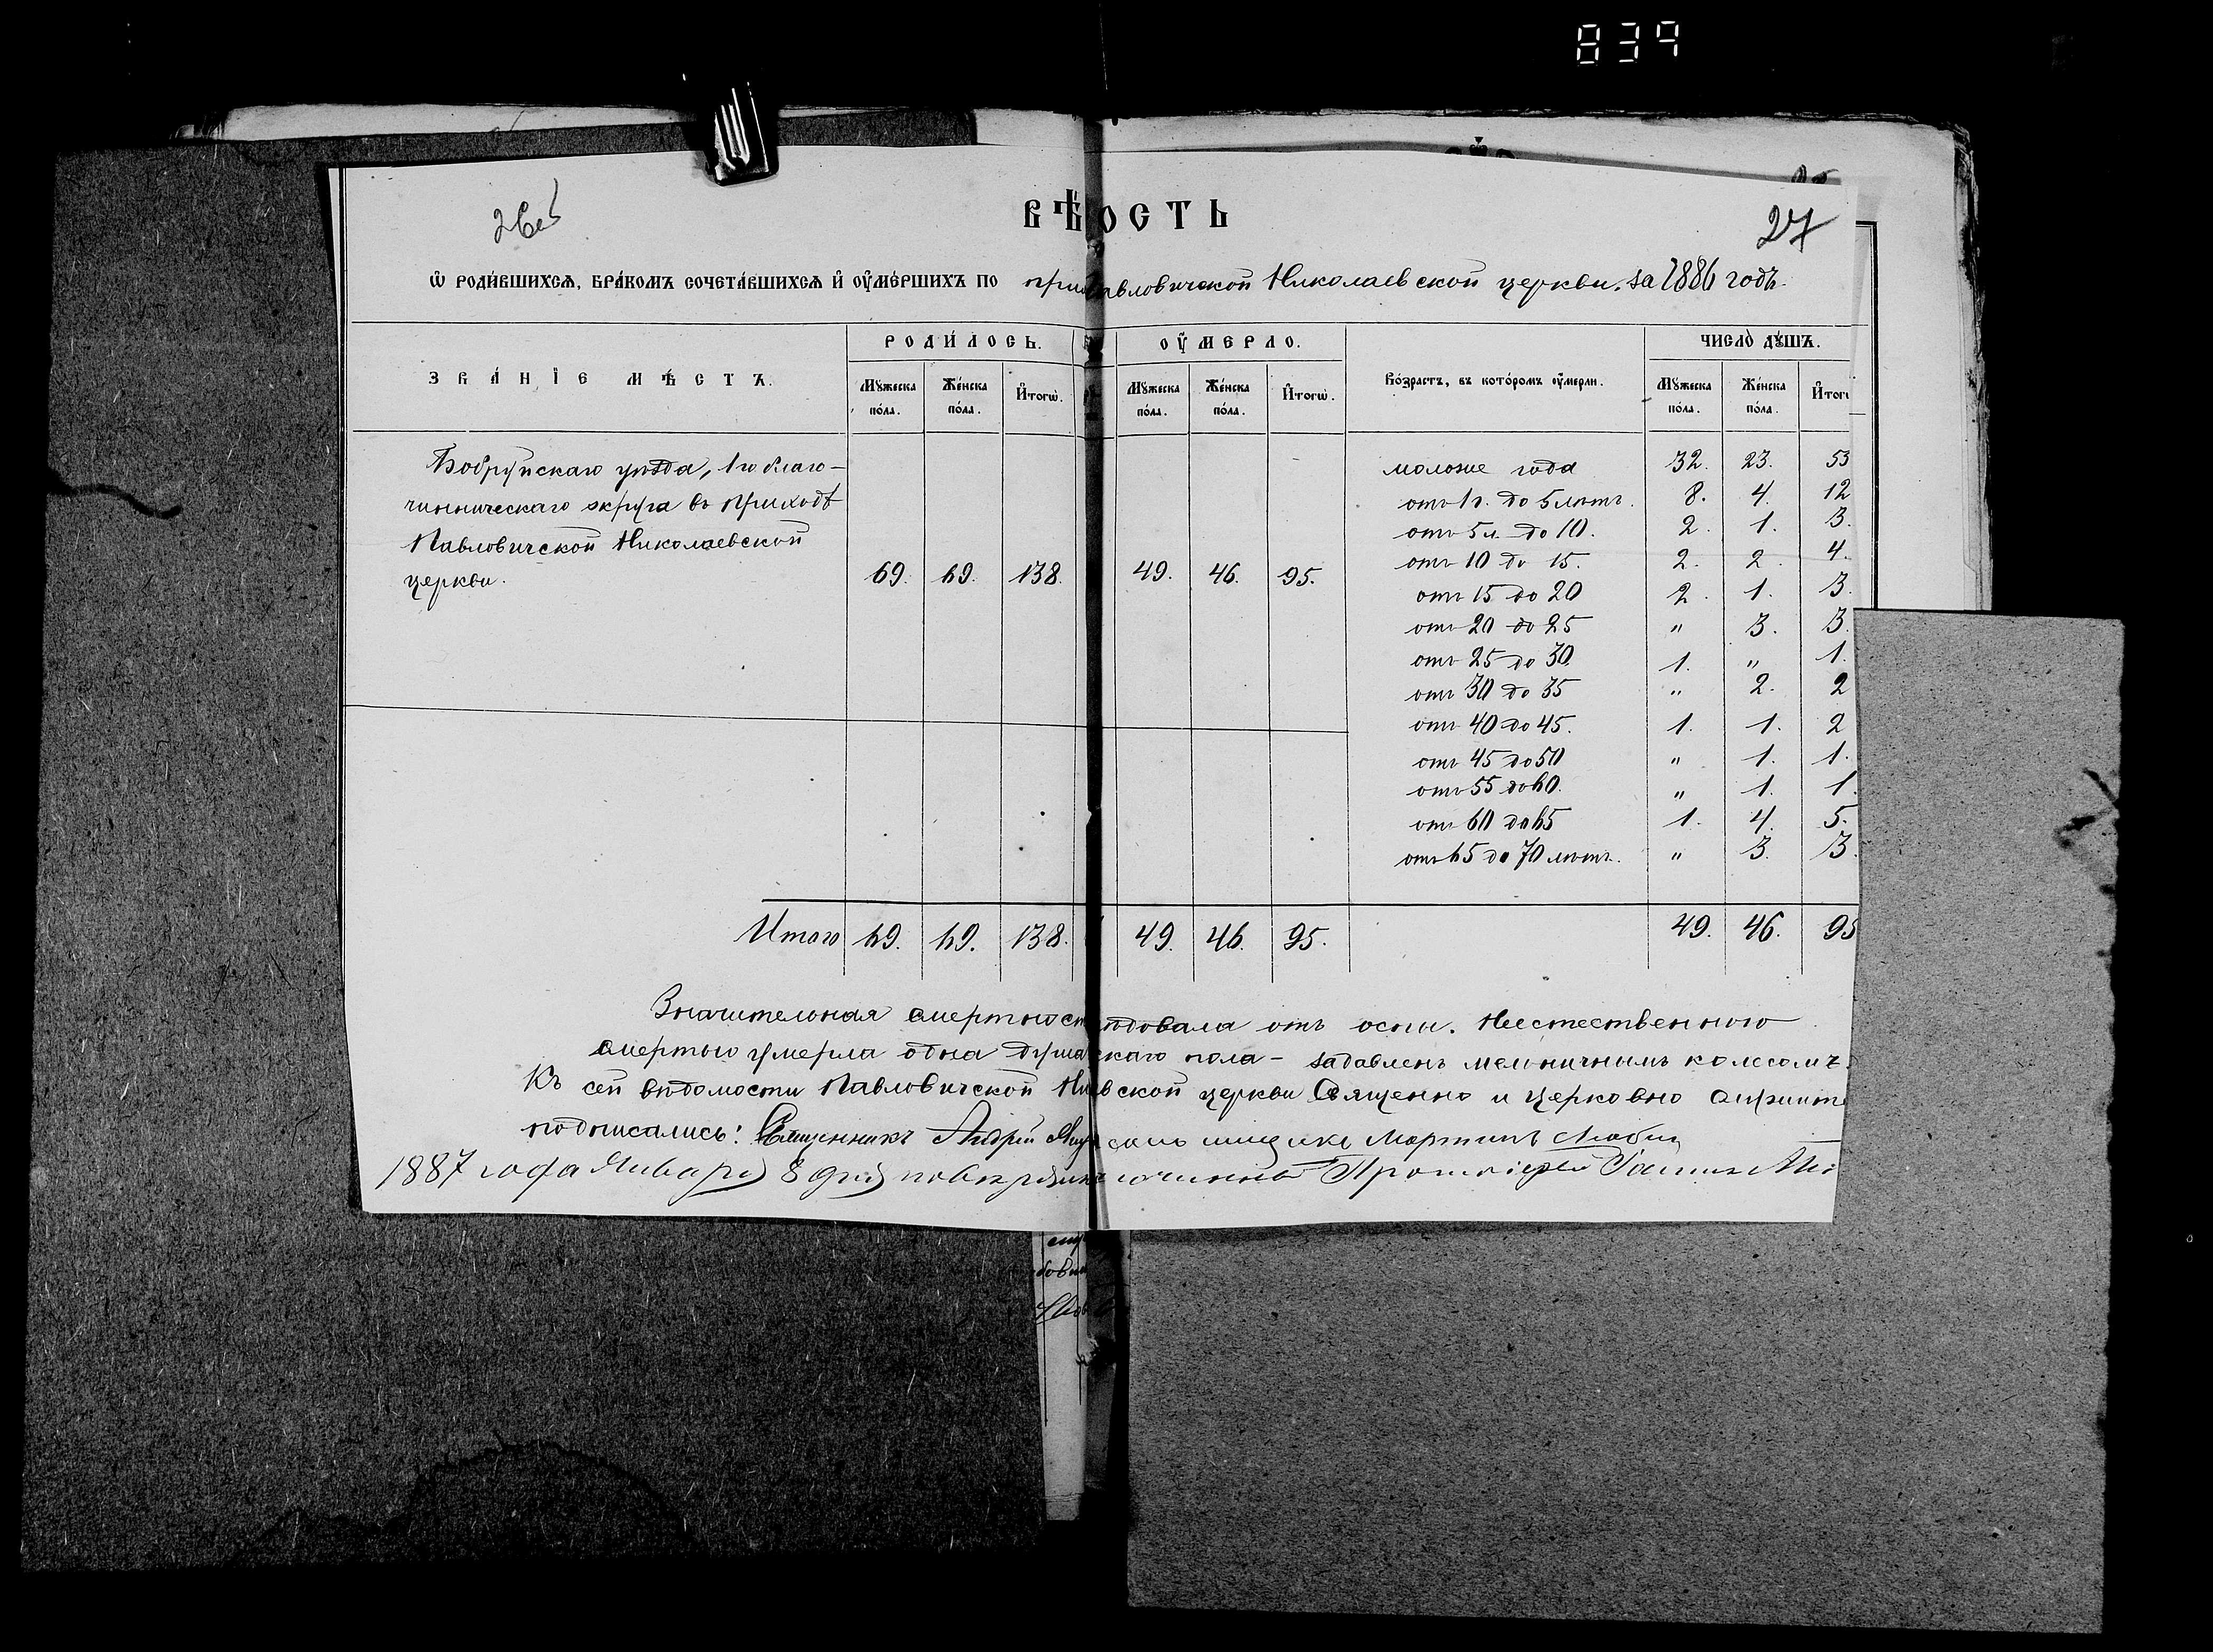 839
27
вѣ ость
Ѡ роди́вшихсѧ, бра́комъ сочета́вшихсѧ и҆ оу҆ме́ршихъ по при авловичской Николаевской церкви. за 1886 годъ.
Зва́нїе мѣстъ. Роди́лось. Оу҆мерло. Во́зрастъ, въ кото́ромъ оу҆мерли. Число̀ дꙋ́шъ.
Мꙋжеска по́ла. Же́нска по́ла. И҆тогѡ̀. Мꙋжеска по́ла. Же́нска по́ла. И҆тогѡ̀. Мꙋжеска по́ла. Же́нска по́ла. И҆тог
Бобруйскаго уѣзда, 1го благо-
чинническаго округа въ приходѣ
Павловичской Николаевской
церкви. 69. 69. 138. 49. 46. 95.
моложе года 32. 23. 53
отъ 1 г. до 5 лѣтъ. 8. 4. 12
отъ 5 л. до 10. 2. 1. 3.
отъ 10 до 15. 2. 2. 4.
отъ 15 до 20 2. 1. 3.
отъ 20 до 25 " 3. 3.
отъ 25 до 30. 1. " 1.
отъ 30 до 35 " 2. 2
отъ 40 до 45. 1. 1. 2
отъ 45 до 50 " 1. 1.
отъ 55 до 60. " 1. 1.
отъ 60 до 65 1. 4. 5.
отъ 65 до 70 лѣтъ. " 3. 3.
Итого 69. 69. 138. 49. 46. 95. 49. 46. 95
Значительная смертност ѣдовала отъ оспы. Неестественною
смертью умерла одна душа скаго пола - задавленъ мельничнымъ колесомъ.
Къ сей вѣдомости Павловичской Ни вской церкви Священно и церковно служите
подписались: Священникъ Андрей Мартинъ
1887 года Января 8 дня Протоіерей Іоаннъ